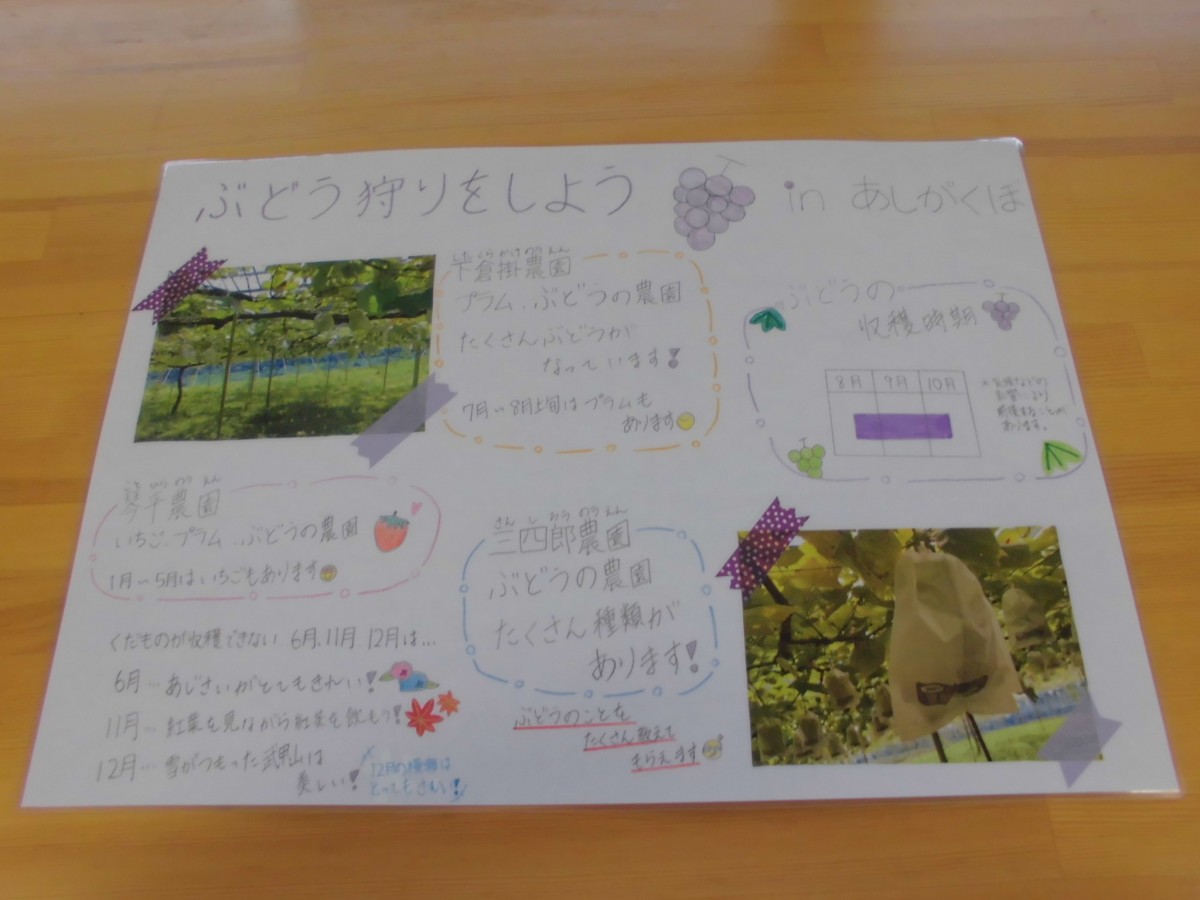 ぶどう狩りをしよう in あしがくぼ
農園
プラム、ぶどうの農園
たくさんぶどうが
なっています!
7月~8月上旬はプラムも
あります
ぶどうの
収穫時期
8月 9月 10月
前後することが
あります。
農園
いちご、プラム、ぶどうの農園
1月~5月はいちごもあります
さんしろうのうえん
三四郎農園
ぶどうの農園
たくさん種類が
あります!
ぶどうのことを
たくさん教えて
もらえます
くだものが収穫できない 6月、11月、12月は…
6月…あじさいがとてもきれい!
11月…紅葉を見ながら紅茶を飲もう!
12月…雪がつもった武甲山は
美しい!
12月の
とってもきれい!